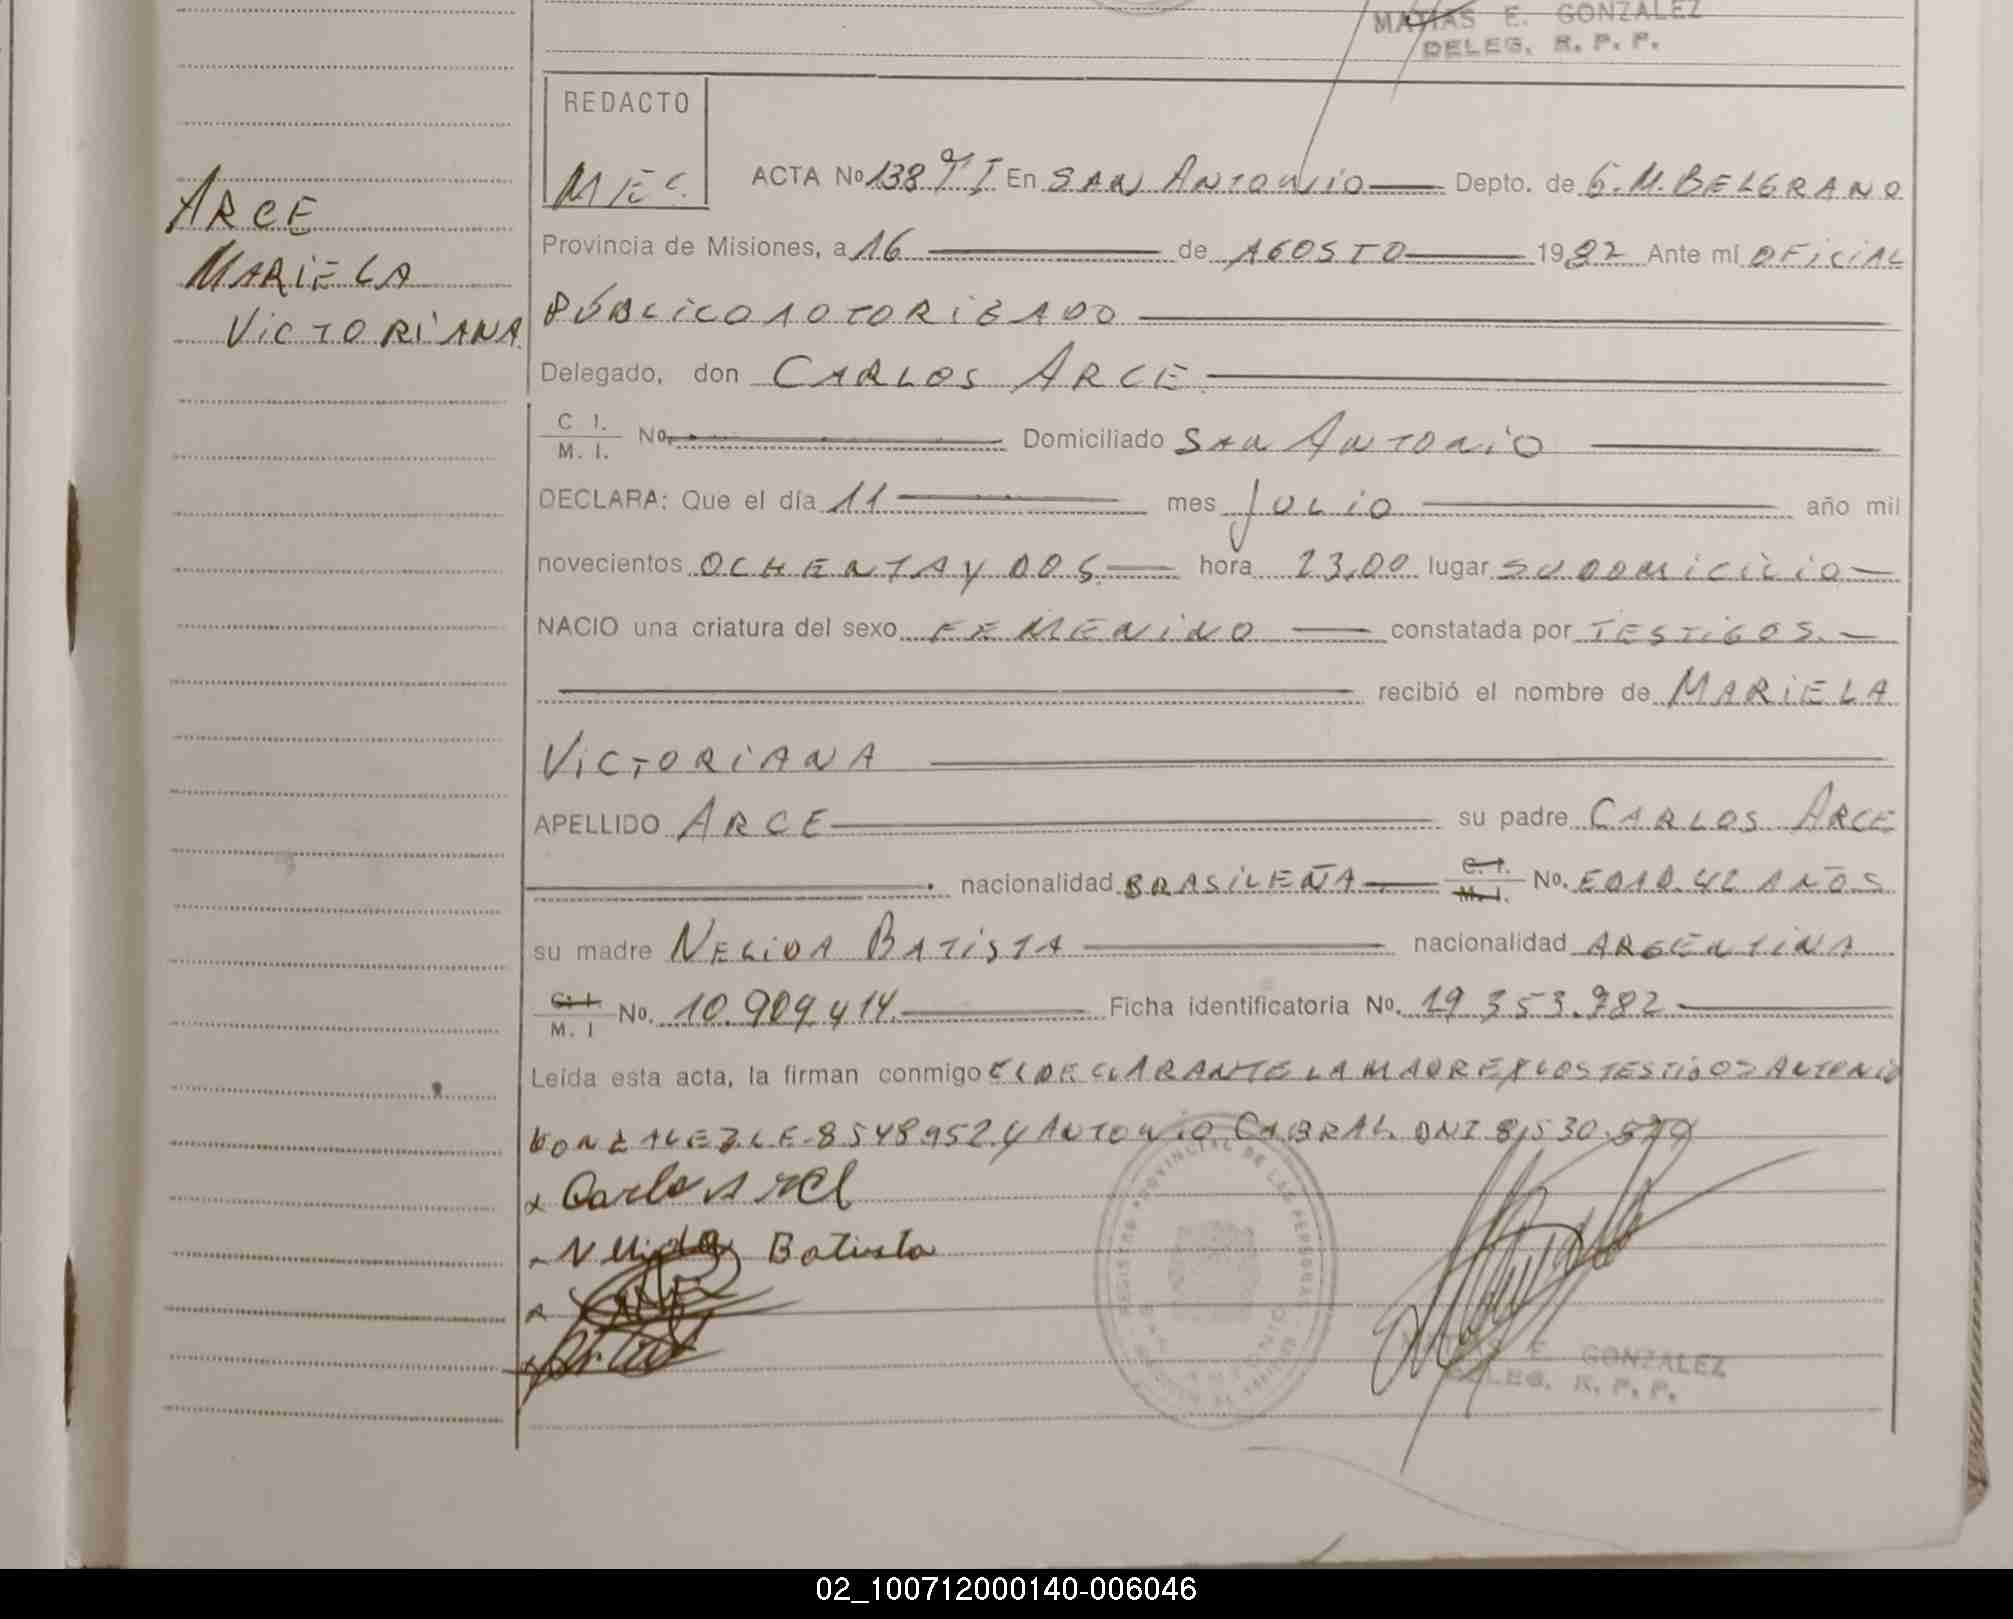 MATIAS E. GONZALEZ
DELEG. R. P. P.
REDACTO
MEC.
ARCE
MARIELA
VICTORIANA
ACTA No 138 TI En SAN ANTONIO Depto. de G.M. BELGRANO
Provincia de Misiones, a 16 de AGOSTO 1982 Ante mí OFICIAL
PÚBLICO AUTORIZADO
Delegado, don CARLOS ARCE
C I. M. I. No. Domiciliado SAN ANTONIO
DECLARA: Que el día 11 mes JULIO año mil
novecientos OCHENTA Y DOS hora 23,00 lugar SU DOMICILIO
NACIO una criatura del sexo FEMENINO constatada por TESTIGOS.
recibió el nombre de MARIELA
VICTORIANA
APELLIDO ARCE su padre CARLOS ARCE
nacionalidad BRASILEÑA C. I. M. I. No. EDAD. 42 AÑOS
su madre NELIDA BATISTA nacionalidad ARGENTINA
C. I. M. I No. 10.909.414. Ficha identificatoria No. 29.353.782
Leída esta acta, la firman conmigo EL DECLARANTE LA MADRE Y LOS TESTIGOS ANTONIO
GONZALEZ L.E. 8548952 Y ANTONIO CABRAL DNI 8,530.579
x Carlos Arce
Nelida Batista
REGISTRO PROVINCIAL DE LAS PERSONAS
SAN ANTONIO
MATIAS E. GONZALEZ
DELEG. R. P. P.
02_100712000140-006046